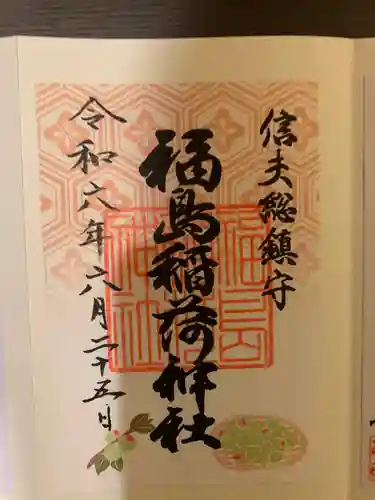 信夫総鎮守
福島稲荷神社
令和六年六月二十五日